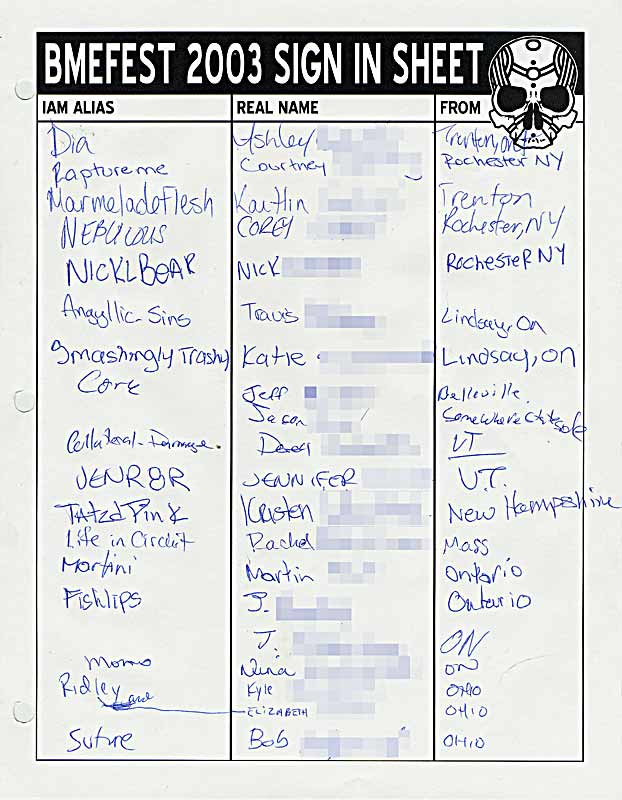 BMEFEST 2003 SIGN IN SHEET
IAM ALIAS REAL NAME FROM
Dia Ashley Trenton, ont
Rapture me Courtney Rochester NY
Marmeladeflesh Kaitlin Trenton
NEBULOUS COREY Rochester, NY
NICKLBEAR NICK ROCHESTER NY
Angyllic-Sins Travis Lindsay, On
Smashingly Trashy Katie Lindsay, on
Cork Jeff Belleville
Jason Somewhere
Collateral-Damage. VT
JENR8R JENNIFER V.T.
TATZd Pink Kristen New Hampshire
Life in Circuit Rachel Mass
Martini Martin Ontario
Fishlips J. Ontario
J. ON
Momo Nina ON
Ridley Kyle OHIO
and ELIZABETH OHIO
Suture Bob OHIO